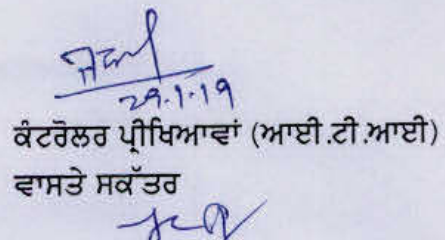 29.1.19
ਕੰਟਰੋਲਰ ਪ੍ਰੀਖਿਆਵਾਂ (ਆਈ.ਟੀ.ਆਈ)
ਵਾਸਤੇ ਸਕੱਤਰ